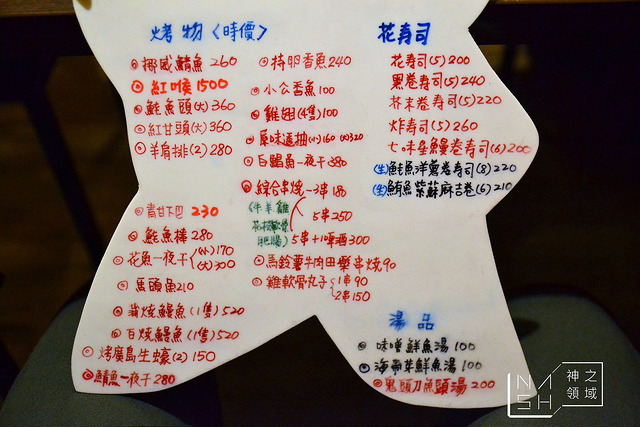 烤物〈時價〉
挪威鯖魚 260
紅喉 1500
鮭魚頭(大) 360
紅甘頭(大) 360
羊肩排(2) 280
青甘下巴 230
鮭魚棒 280
花魚一夜干 (小)170
(大)300
馬頭魚 210
蒲燒鰻魚(1隻) 520
白燒鰻魚(1隻) 520
烤廣島生蠔(2) 150
鯖魚一夜干 280
持卵香魚 240
小公香魚 100
雞翅(4隻) 100
原味透抽(小)160 (大)320
白鯧魚一夜干 380
綜合串燒一3串 180
(牛 羊 雞
肥腸)
5串 250
5串+1啤酒 300
馬鈴薯牛肉田樂串燒 90
雞軟骨丸子 1串 90
2串 150
花寿司
花寿司(5) 200
黑卷寿司(5) 240
芥末卷寿司(5) 220
炸寿司(5) 260
七味朵鰻卷寿司(6) 200
(生)鮭魚洋蔥卷寿司(8) 220
(生)鮪魚紫蘇麻吉卷(6) 210
湯品
味噌鮮魚湯 100
海帶芽鮮魚湯 100
鬼頭刀魚頭湯 200
NASH 神之領域